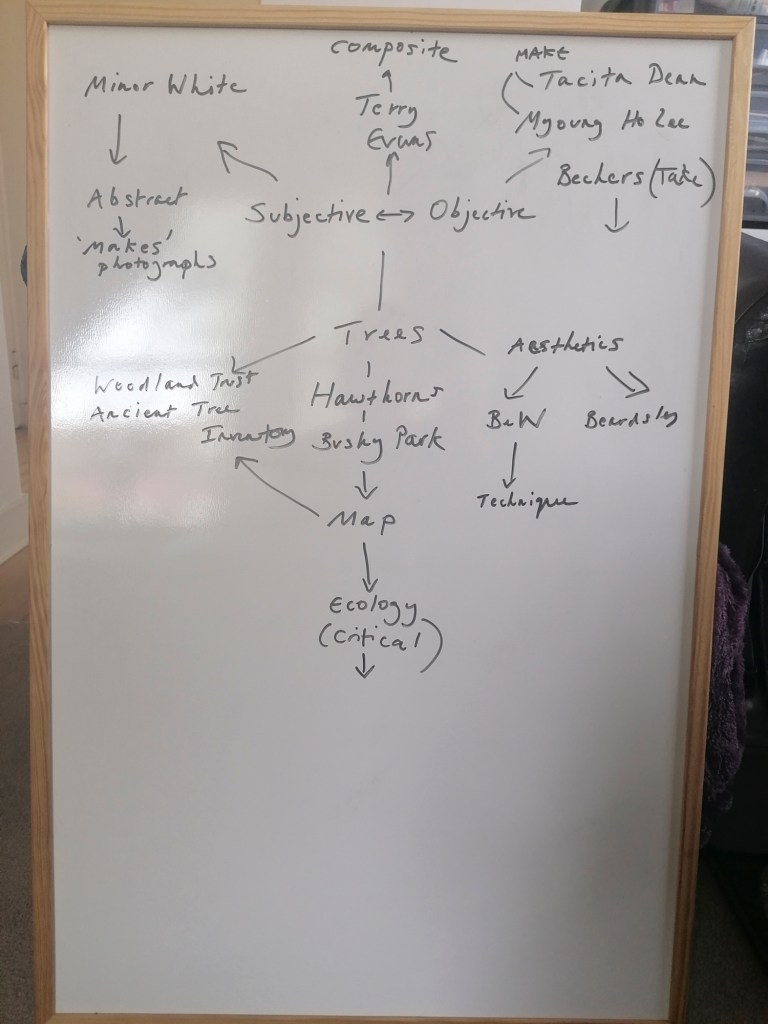 Composite
MAKE
Minor White
Tacita Dean
Terry
Evans
Myoung Ho Lee
Bechers (Take)
Abstract
Subjective ↔ Objective
'Makes'
photographs
Trees
Aesthetics
Woodland Trust
Ancient Tree
Inventory
Hawthorns
B&W
Beardsley
Bushy Park
Technique
Map
Ecology
(Critical)